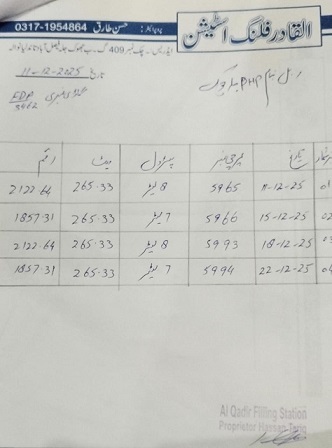 القادر فلنگ اسٹیشن
پروپرائٹر: حسن طارق 0317-1954864
تاریخ 11-12-2025
رقم ریٹ پٹرول پرچی نمبر تاریخ
01 11-12-25 5965 8 لیٹر 265.33 2122.64
02 15-12-25 5966 7 لیٹر 265.33 1857.31
03 18-12-25 5993 8 لیٹر 265.33 2122.64
04 22-12-25 5994 7 لیٹر 265.33 1857.31
Al Qadir Filling Station
Proprietor Hassan Tariq